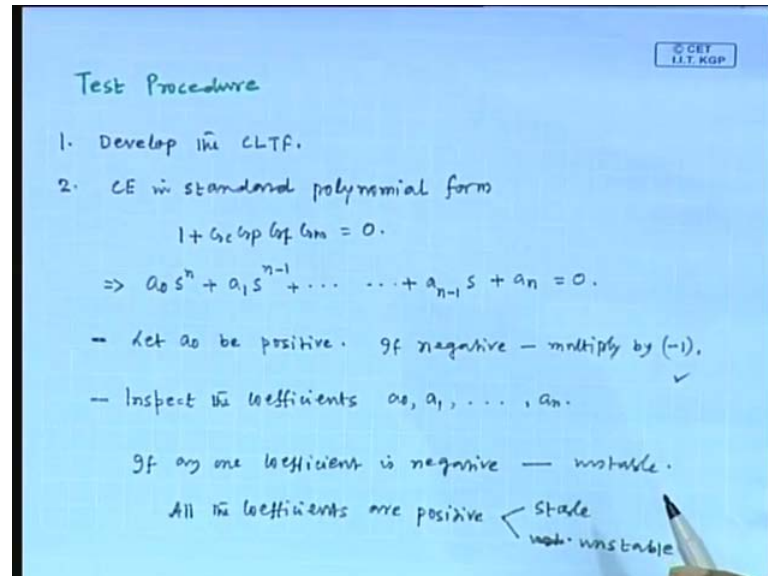 © CET
I.I.T. KGP
Test Procedure
1. Develop the CLTF.
2. CE in standard polynomial form
1 + Gc Gp Gf Gm = 0.
⇒ a₀sⁿ + a₁sⁿ⁻¹ + ... ... + aₙ₋₁s + aₙ = 0.
- Let a₀ be positive. If negative – multiply by (-1). ✓
- Inspect the coefficients a₀, a₁, ...., aₙ.
If any one coefficient is negative — unstable.
All the coefficients are positive < stable
unstable